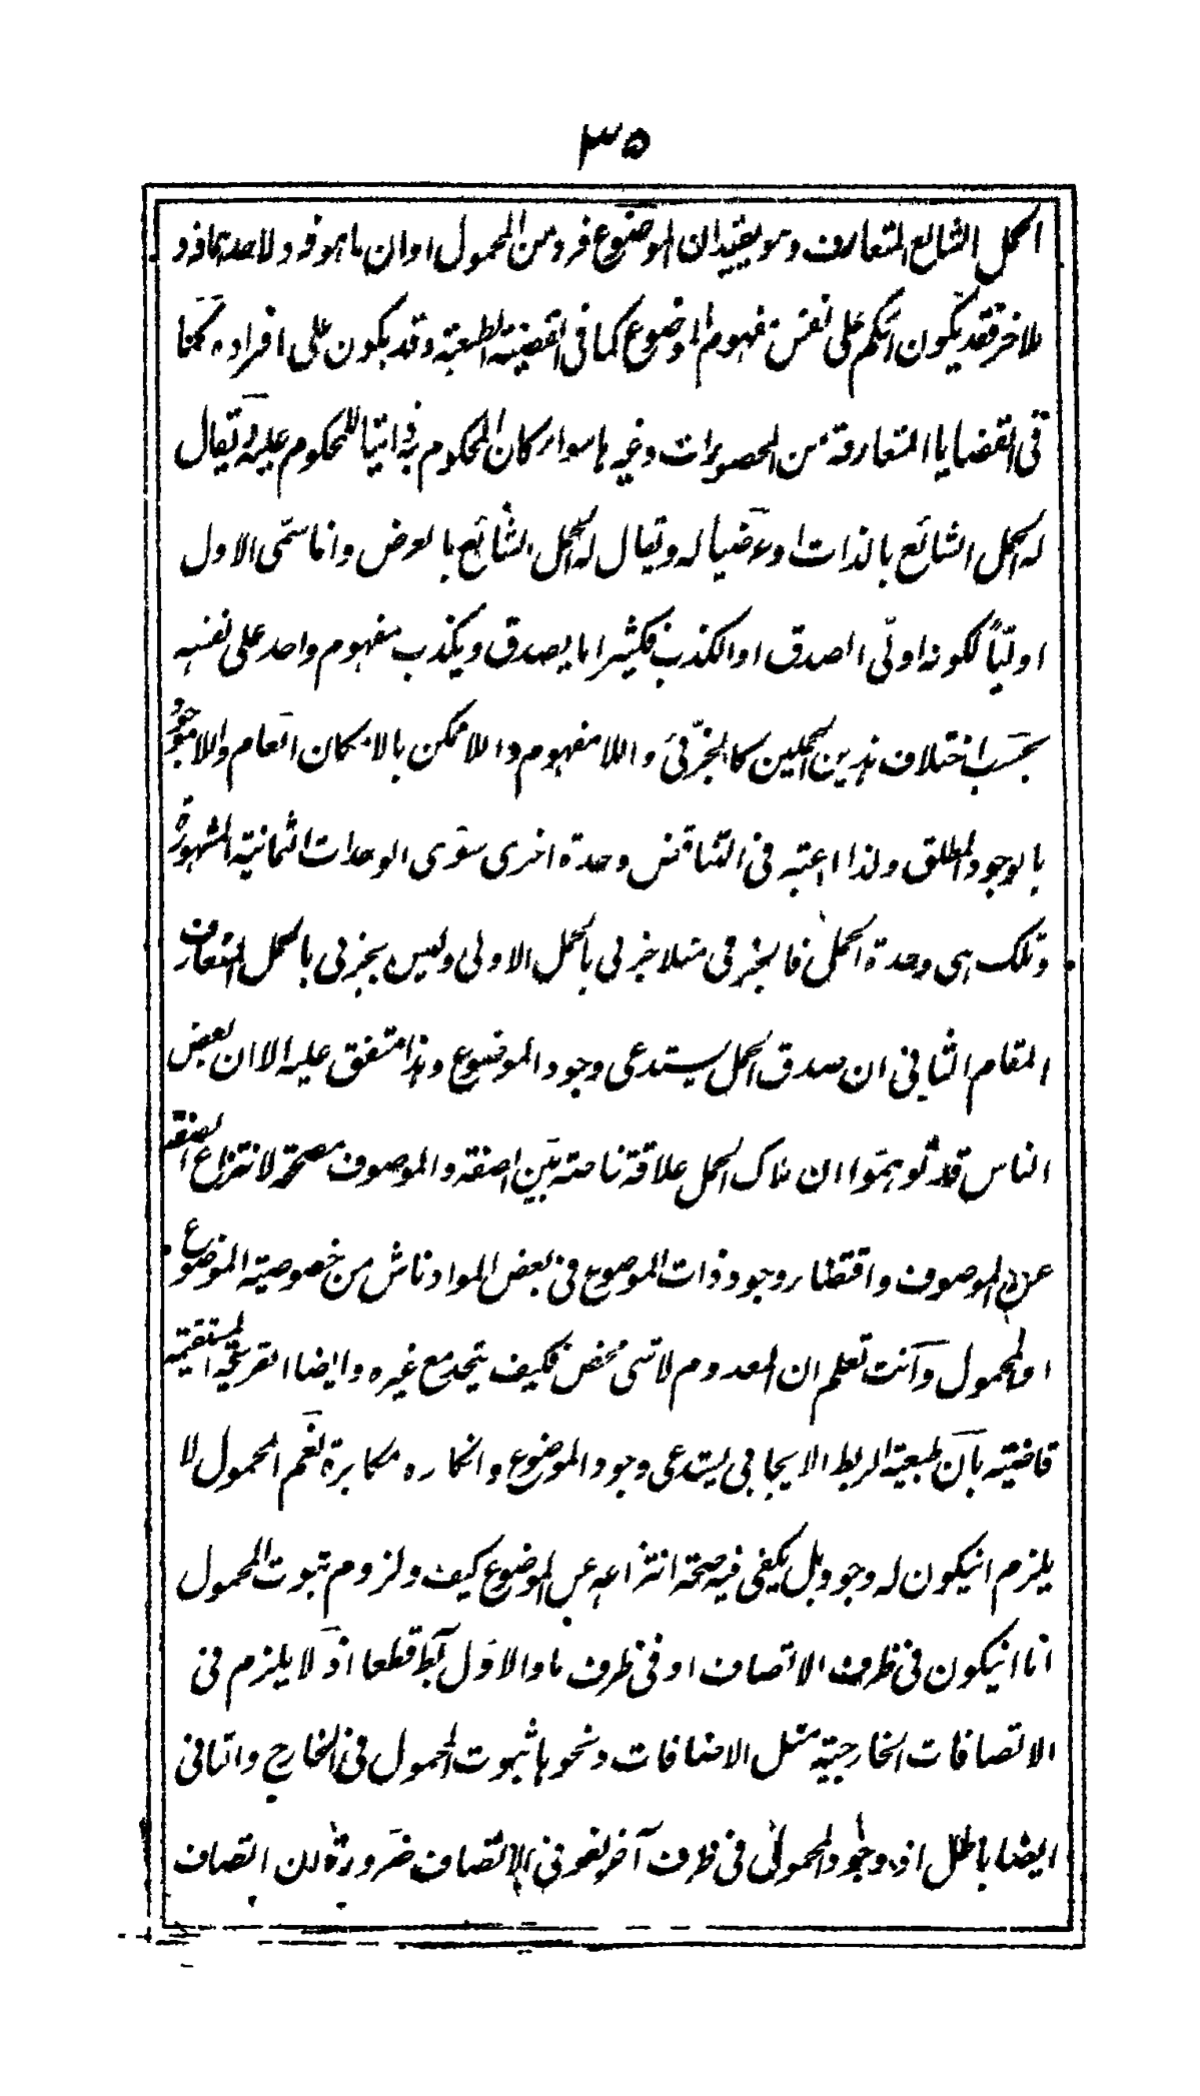 ٣٥
الحمل الشائع المتعارف وهو يفيد ان الموضوع فرد من المحمول او ان ما هو فرد لاحدهما فرد
للاخر فقد يكون الحكم على نفس مفهوم الموضوع كما فى القضية الطبعية وقد يكون على افراده كما
فى القضايا المتعارفة من المحصورات وغيرها سواء كان المحكوم به ذاتيا للمحكوم عليه ويقال
له الحمل الشائع بالذات او عرضيا له ويقال له الحمل الشائع بالعرض وانما سمى الاول
اوليّاً لكونه اولى الصدق او الكذب فكثيرا ما يصدق ويكذب مفهوم واحد على نفسه
بحسب اختلاف هذين الحملين كالجزئى واللا مفهوم واللا ممكن بالامكان العام واللا موجود
بالوجود المطلق ولذا اعتبر فى التناقض وحدة اخرى سوى الوحدات الثمانية المشهورة
وتلك هى وحدة الحمل فالجزئى مثلا جزئى بالحمل الاولى وليس بجزئى بالحمل المتعارف
المقام الثانى ان صدق الحمل يستدعى وجود الموضوع وهذا متفق عليه الا ان بعض
الناس قد توهموا ان ملاك الحمل علاقة خاصة بين الصفة والموصوف مصححة لانتزاع الصفة
عن الموصوف واقتضاء وجود ذات الموضوع فى بعض المواد ناش من خصوصية الموضوع
او المحمول وانت تعلم ان المعدوم لا شى محض فكيف يتحد مع غيره وايضا القريحة المستقيمة
قاضية بان طبعية الربط الايجابى يستدعى وجود الموضوع وانكاره مكابرة نعم المحمول لا
يلزم انيكون له وجود بل يكفى فيه صحة انتزاعه عن الموضوع كيف ولزوم ثبوت المحمول
اما انيكون فى ظرف الاتصاف او فى ظرف ما والاول بط قطعا اذ لا يلزم فى
الاتصافات الخارجية مثل الاضافات ونحوها ثبوت المحمول فى الخارج والثانى
ايضا باطل اذ وجود المحمول فى ظرف آخر لغو فى الاتصاف ضرورة ان اتصاف